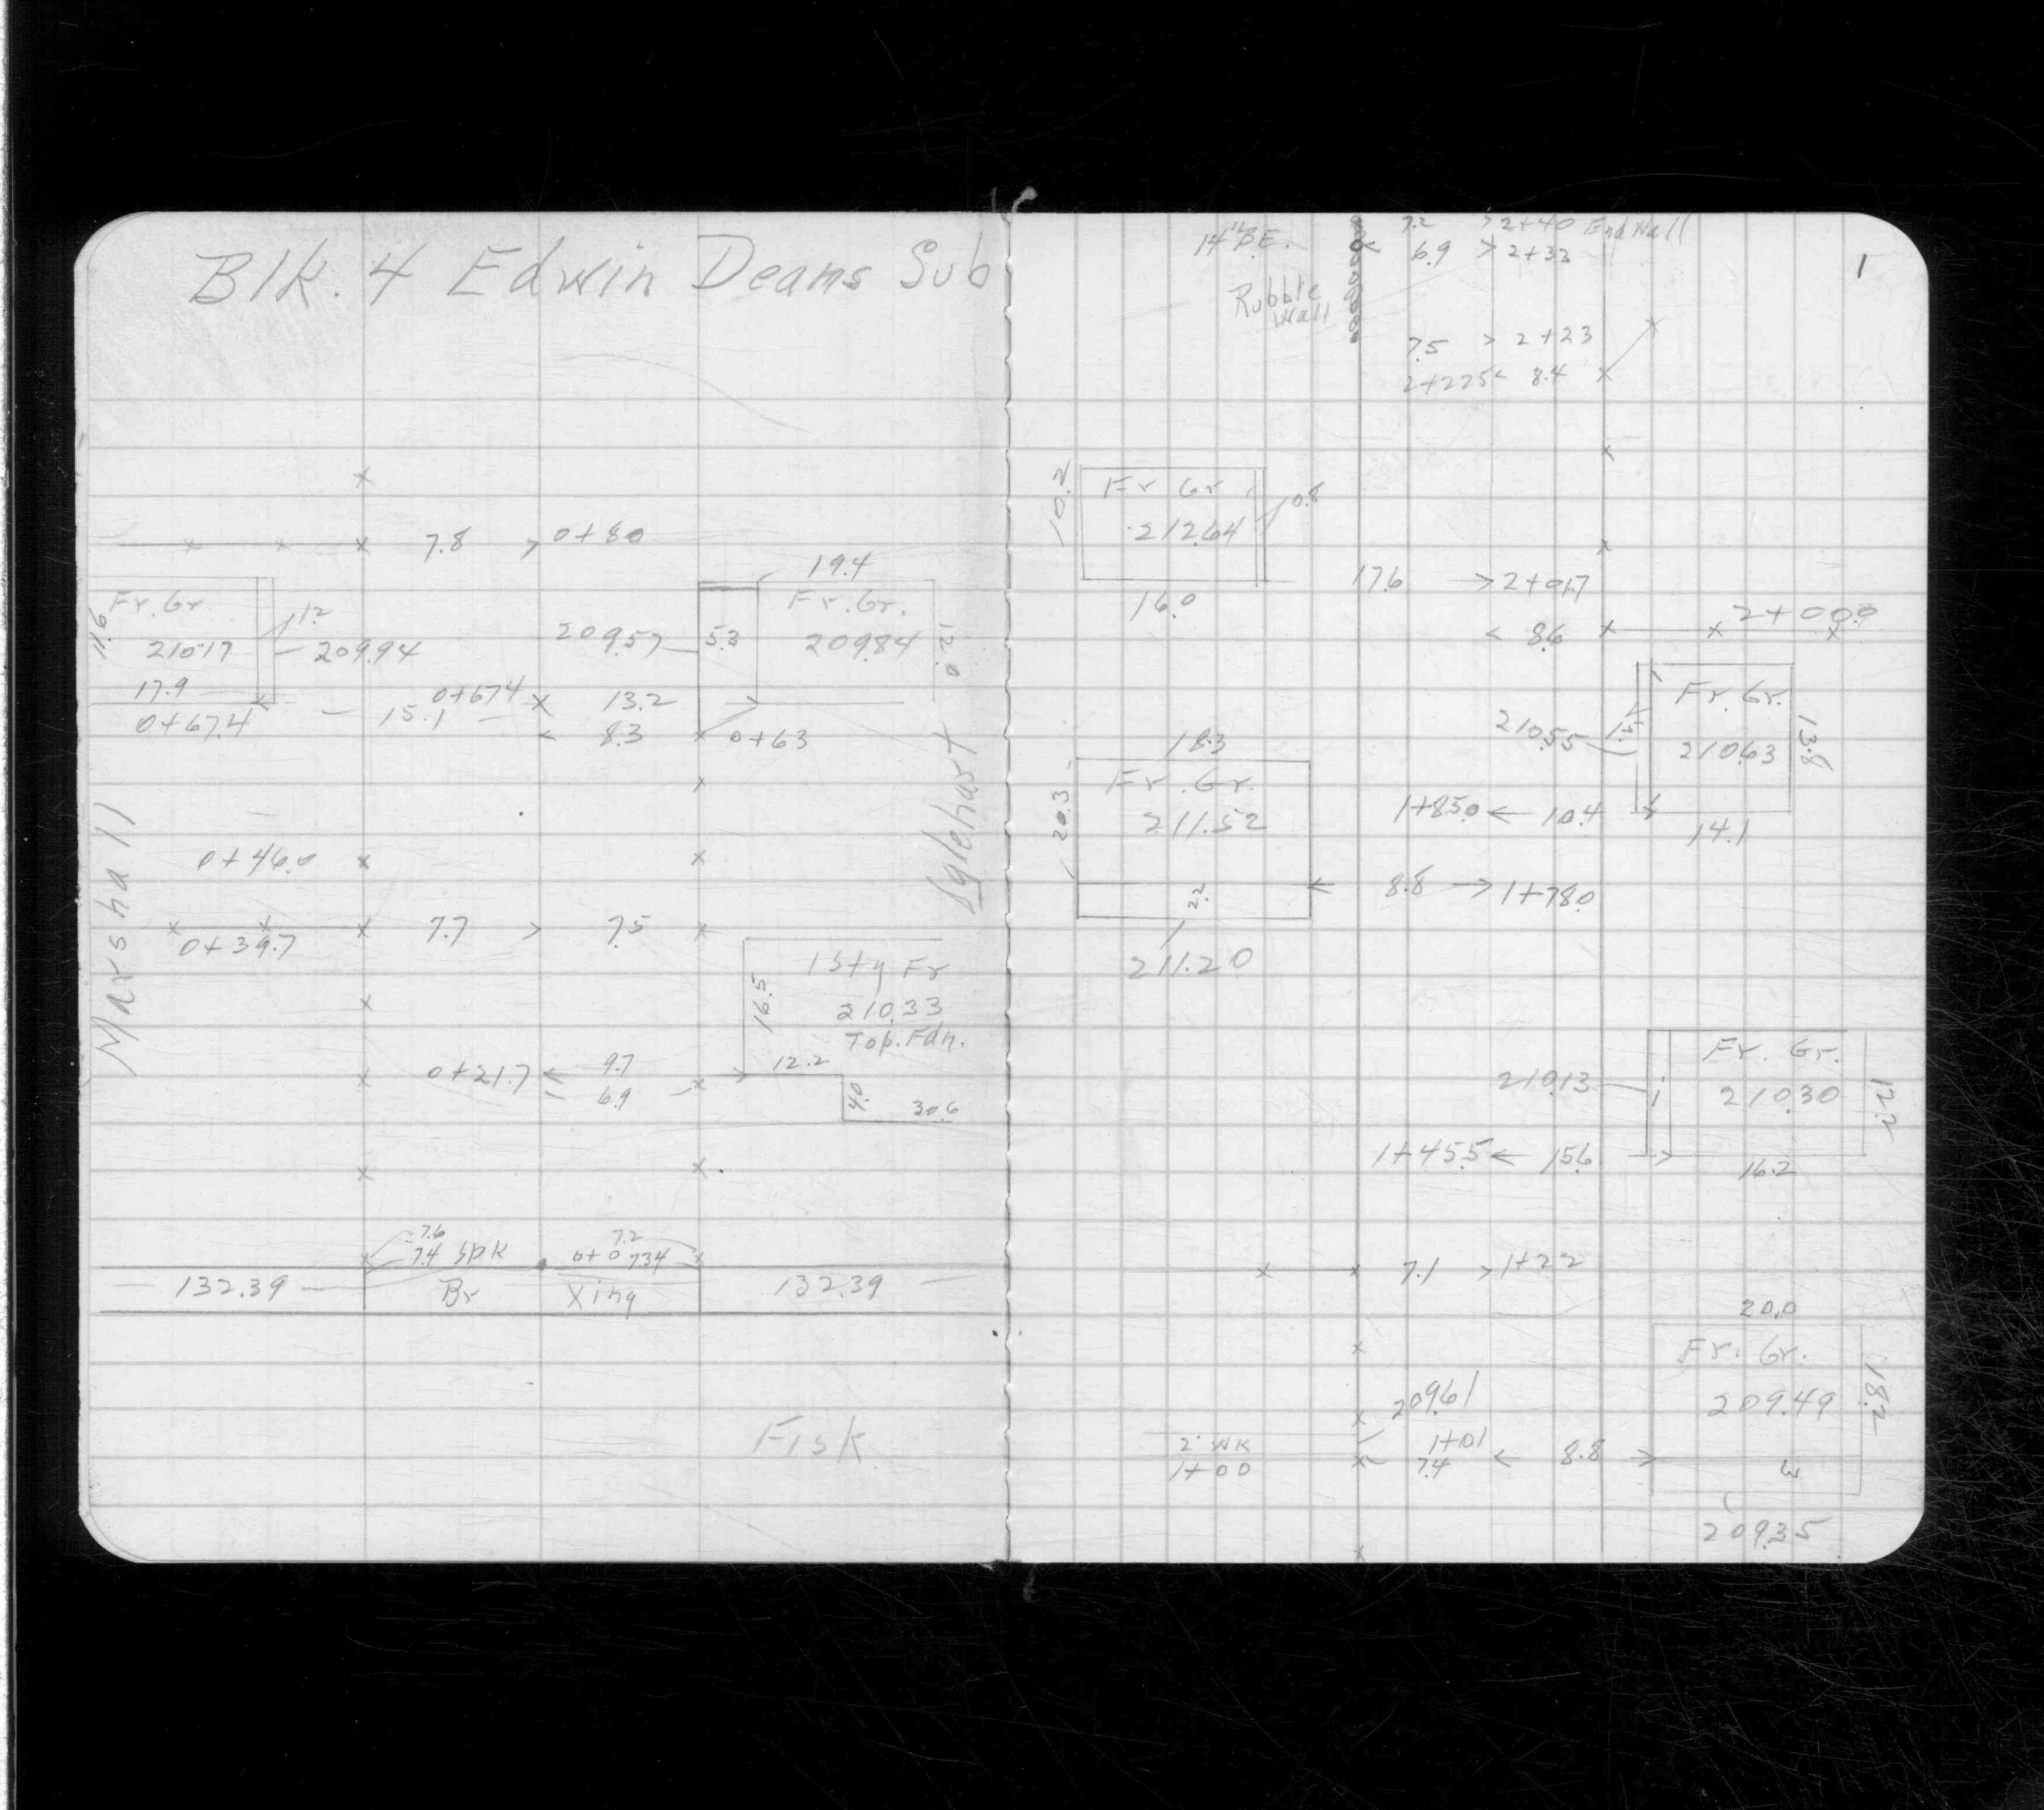 Blk. 4 Edwin Deans Sub
7.8 > 0+80
19.4
Fr. Gr.
11.6
210.17
1.2
209.94
209.57
5.3
Fr. Gr.
209.84
12.0
17.9
0+67.4
15.1
0+67.4
13.2
8.3
0+63
Marshall
Iglehart
0+46.0
0+39.7
7.7 > 7.5
1 Sty Fr
210.33
Top. Fdn.
16.5
12.2
4.0
30.6
0+21.7 < 9.7
6.9
7.6
7.4 spk
7.2
0+0 7.34
132.39
Br Xing
132.39
Fisk
1
14" B.E.
7.2 > 2+40 End Wall
< 6.9 > 2+33
Rubble
Wall
7.5 > 2+23
2+22.5 < 8.4
10.2
Fr Gr
212.64
0.8
16.0
17.6 > 2+01.7
< 8.6
2+00.0
Fr. Gr.
210.63
13.8
210.55
1+85.0 ← 10.4
14.1
18.3
Fr. Gr.
211.52
20.3
2.2
← 8.8 → 1+78.0
211.20
Fr. Gr.
210.30
12.2
210.13
1
1+45.5 ← 15.6
16.2
7.1 > 1+22
20.0
Fr. Gr.
209.49
18.2
209.61
2' WK
1+00
1+01
7.4 < 8.8 >
3
209.35